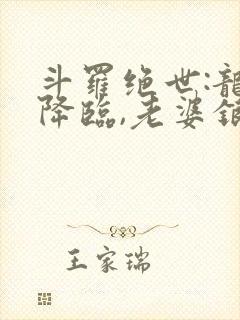 斗羅绝世:龍
降臨,老婆銀
王家瑞